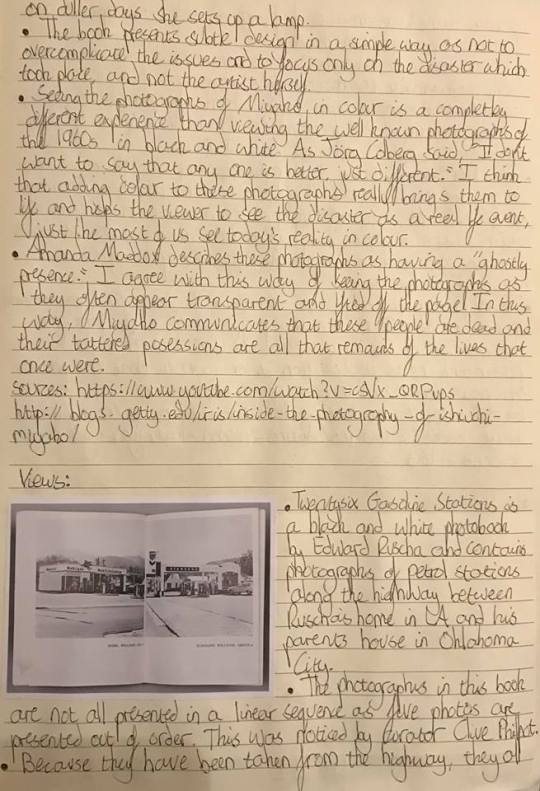 on duller days she sets up a lamp.
• The book presents subtle design in a simple way as not to
overcomplicate the issues and to focus only on the disaster which
took place, and not the artist herself.
• Seeing the photographs of Miyako in colour is a completely
different experience than viewing the well known photographs of
the 1960s in black and white. As Jörg Colberg said, "I don't
want to say that any one is better, just different." I think
that adding colour to these photographs really brings them to
life and helps the viewer to see the disaster as a real life event,
just like most of us see today's reality in colour.
• Amanda Maddox describes these photographs as having a "ghostly
presence." I agree with this way of seeing the photographs as
they often appear transparent and lifted off the page. In this
way, Miyako communicates that these people are dead and
their tattered posessions are all that remains of the lives that
once were.
sources: https://www.youtube.com/watch?v=
http://blogs.getty.edu/iris/inside-the-photography-of-ishiuchi-
miyako/
Views:
• Twentysix Gasoline Stations is
a black and white photobook
by Edward Ruscha and contains
photographs of petrol stations
along the highway between
Ruscha's home in LA and his
parents house in Oklahoma
City.
• The photographs in this book
are not all presented in a linear sequence as five photos are
presented out of order. This was noticed by curator Clive Philpot.
• Because they have been taken from the highway, they all